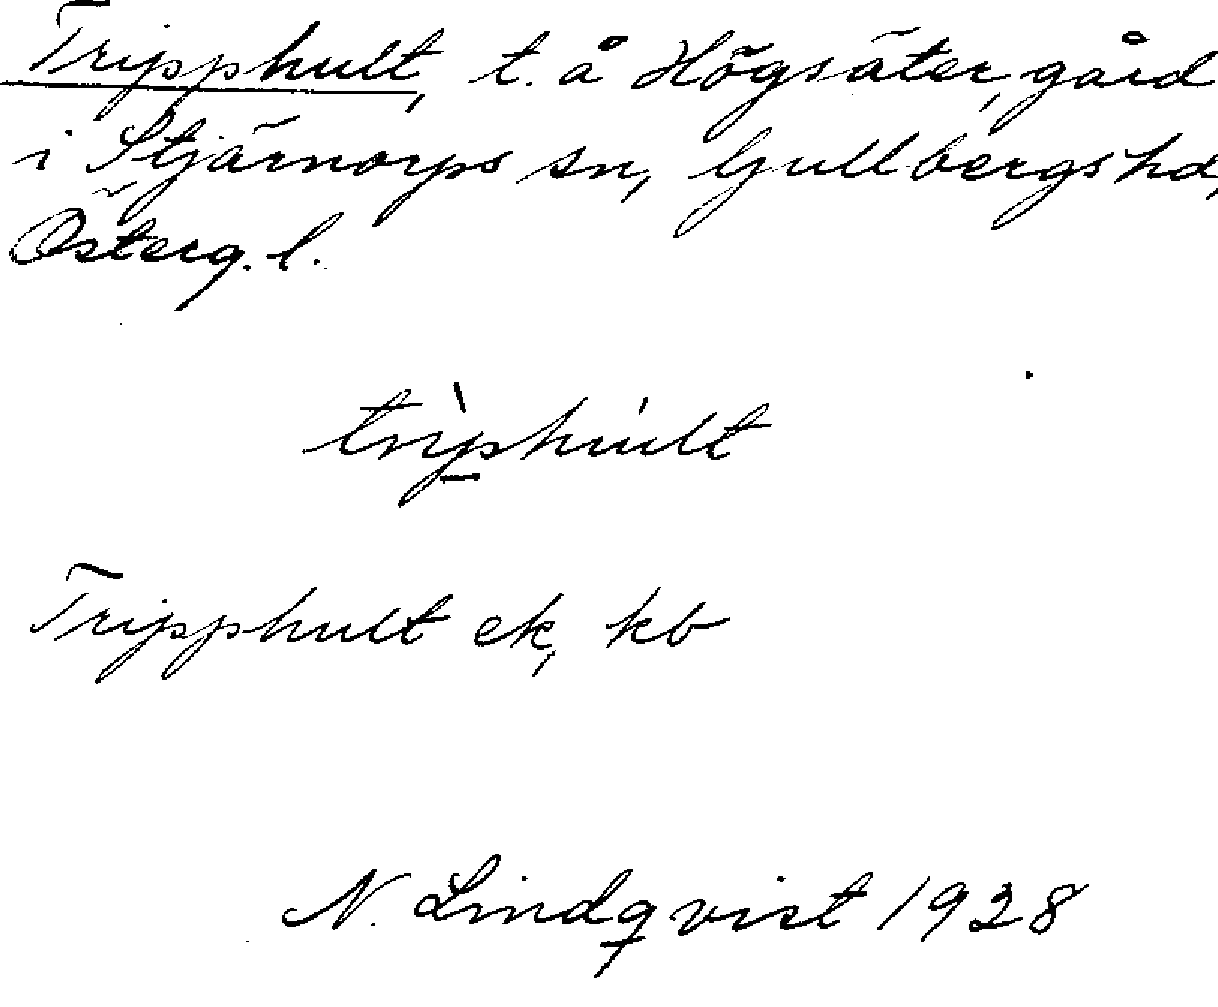 Tripphult, t. å Högsäter, gård
i Stjärnorps sn, Gullbergs hd,
Österg. l.
trìp̲húlt
Tripphult ek, kb
N. Lindqvist 1928